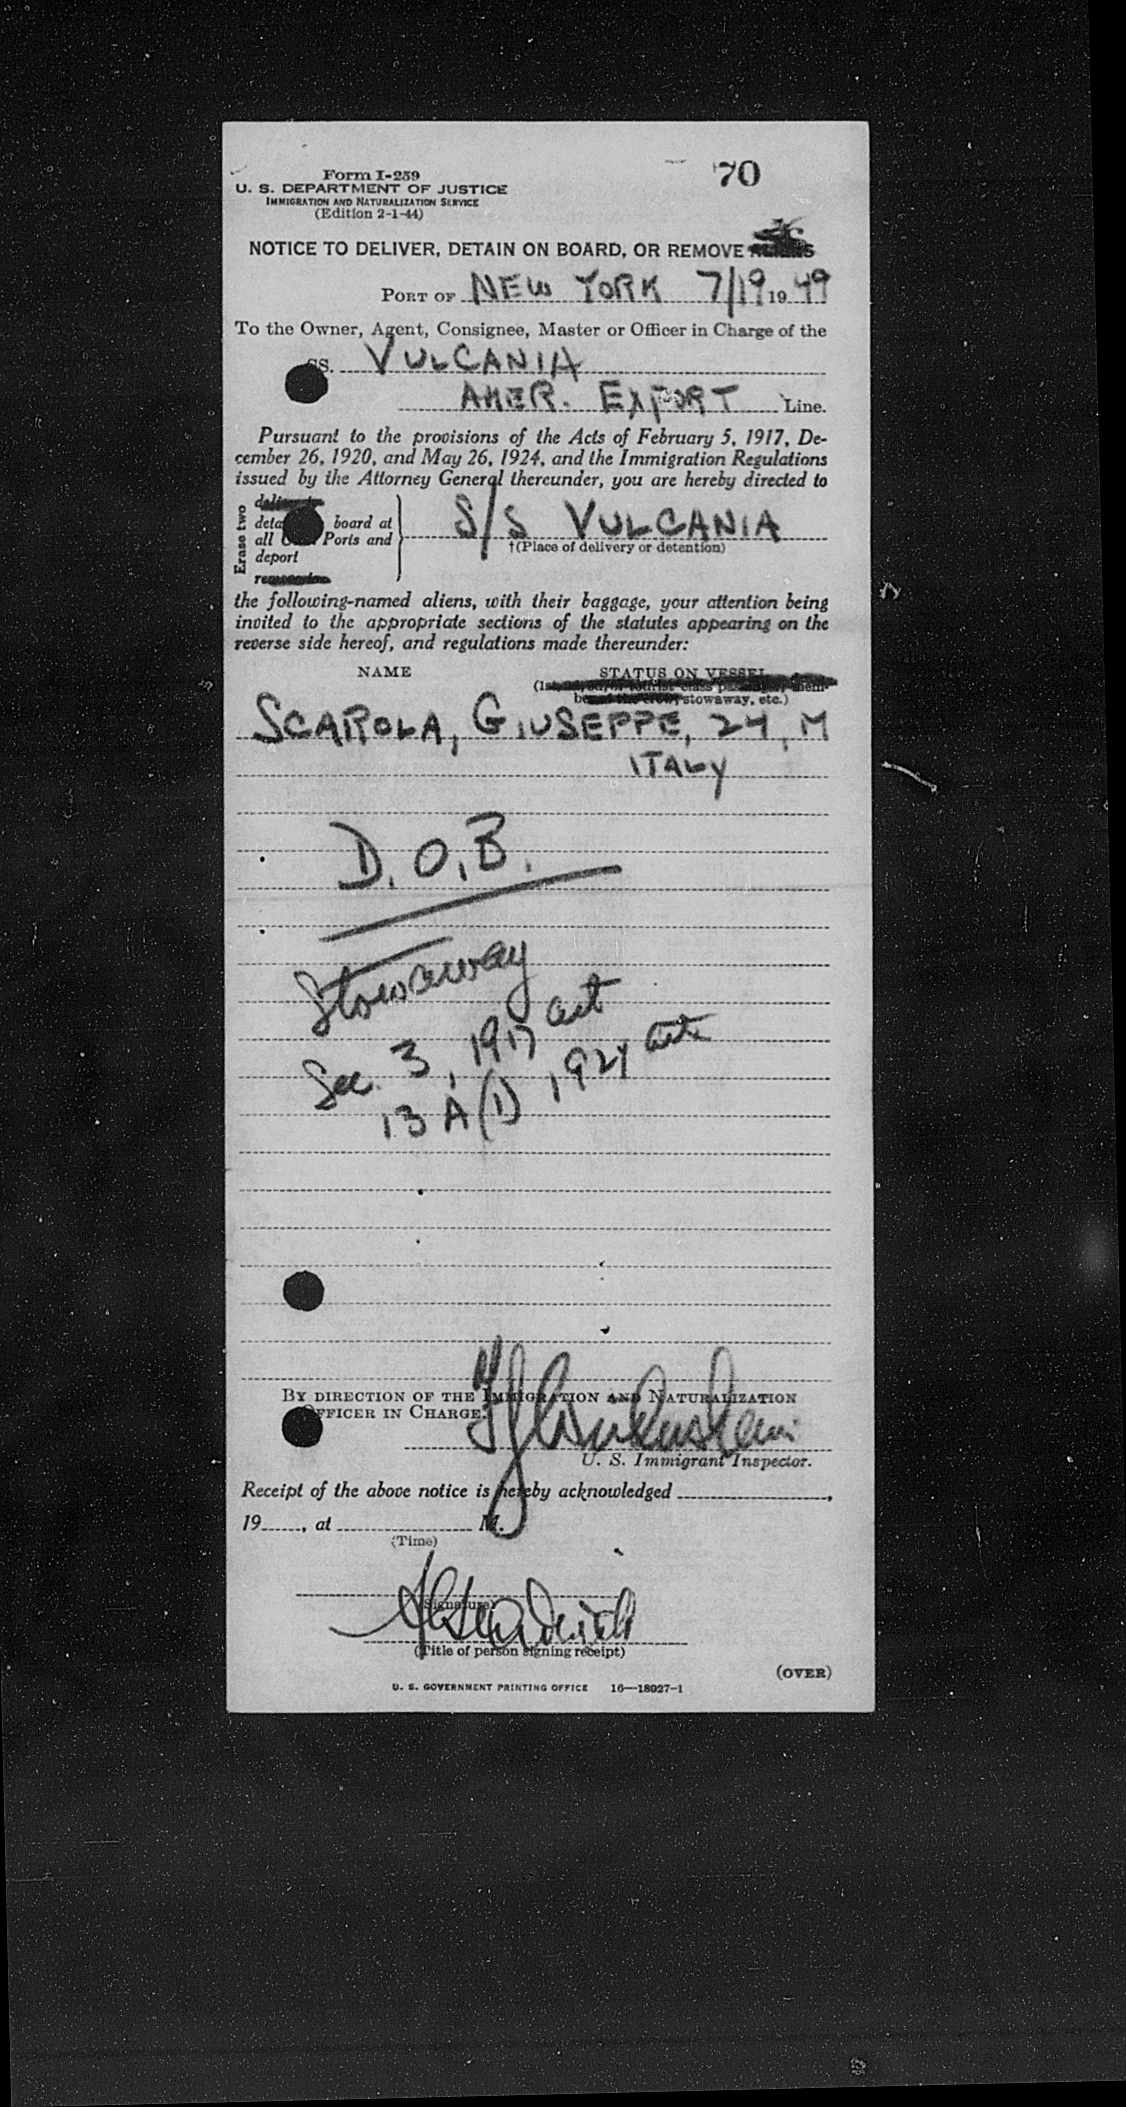 70
Form I-259
U. S. DEPARTMENT OF JUSTICE
IMMIGRATION AND NATURALIZATION SERVICE
(Edition 2-1-44)
NOTICE TO DELIVER, DETAIN ON BOARD, OR REMOVE
PORT OF NEW YORK 7/19 1949
To the Owner, Agent, Consignee, Master or Officer in Charge of the
SS. VULCANIA
AMER. EXPORT Line.
Pursuant to the provisions of the Acts of February 5, 1917, De-
cember 26, 1920, and May 26, 1924, and the Immigration Regulations
issued by the Attorney General thereunder, you are hereby directed to
Erase two
board at
all Ports and
deport
S/S VULCANIA
†(Place of delivery or detention)
the following-named aliens, with their baggage, your attention being
invited to the appropriate sections of the statutes appearing on the
reverse side hereof, and regulations made thereunder:
NAME STATUS ON VESSEL
stowaway, etc.)
SCAROLA, GIUSEPPE, 24, M
ITALY
D.O.B.
Stowaway
Sec. 3, 1917 act
13 A (1) 1924 act
BY DIRECTION OF THE IMMIGRATION AND NATURALIZATION
OFFICER IN CHARGE.
U. S. Immigrant Inspector.
Receipt of the above notice is hereby acknowledged
19, at M.
(Time)
(Signature)
(Title of person signing receipt)
(OVER)
U. S. GOVERNMENT PRINTING OFFICE 16—18027-1